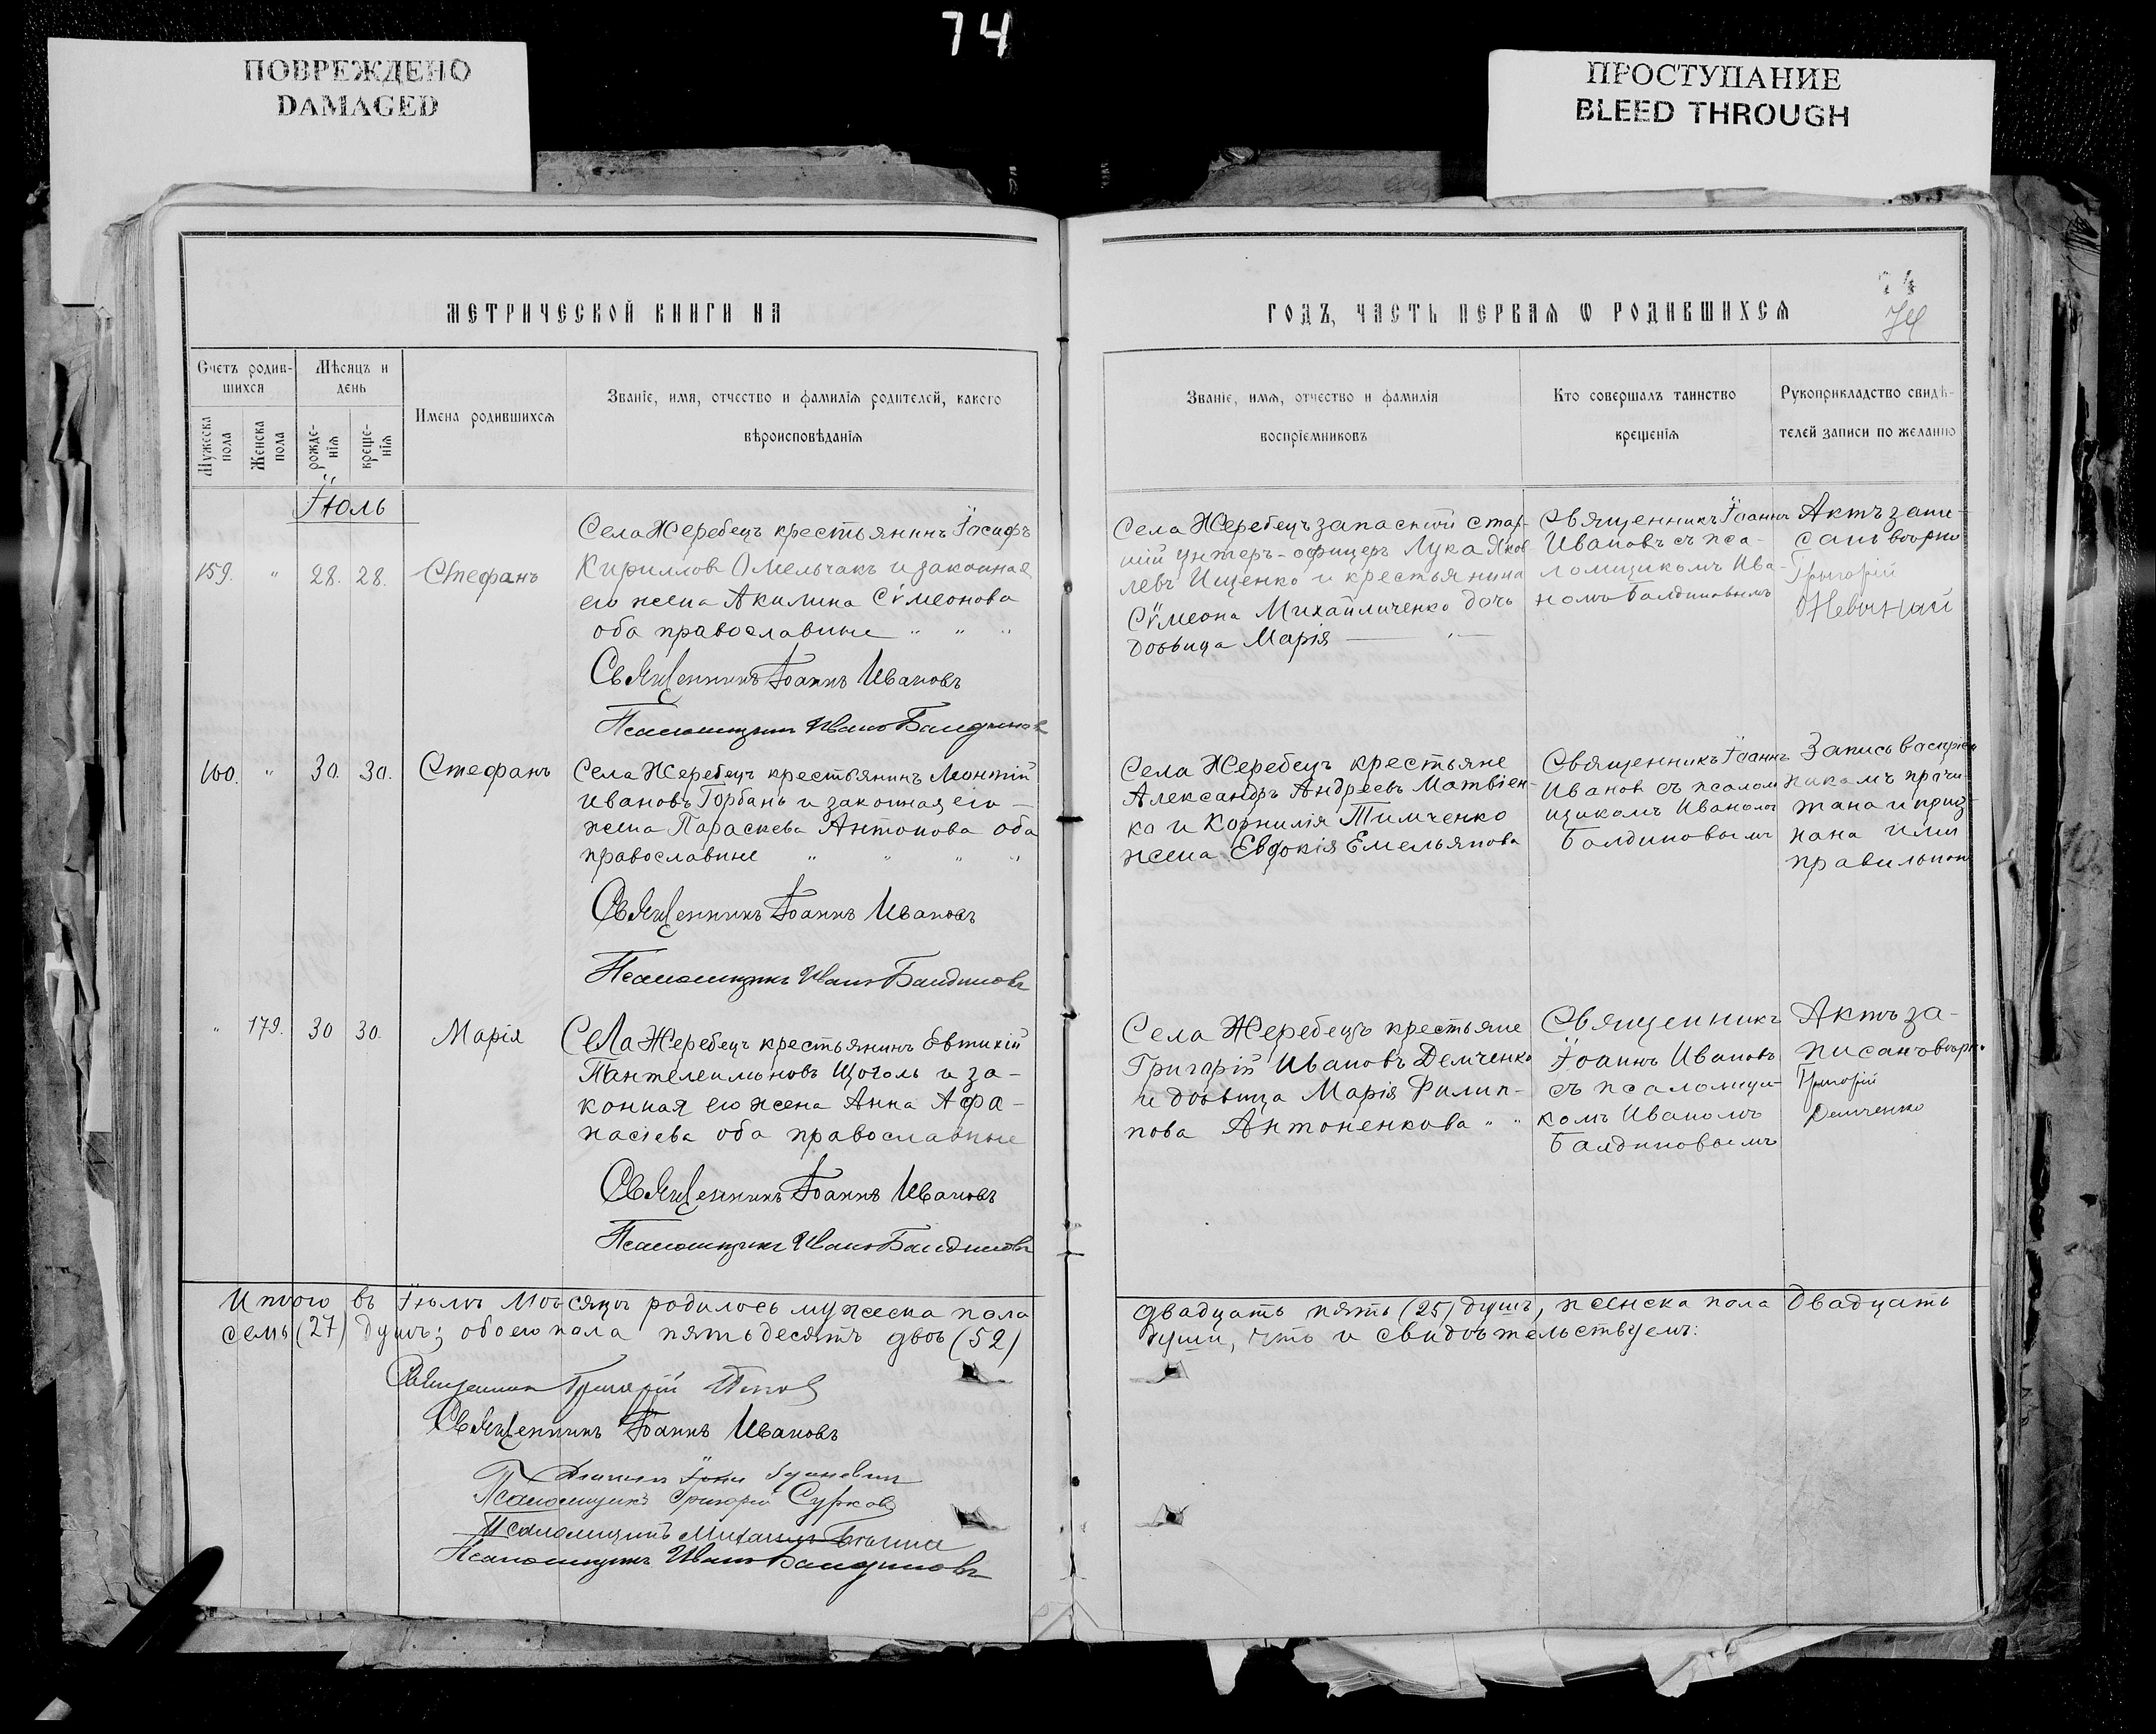 74
ПОВРЕЖДЕНО
DAMAGED
ПРОСТУПАНИЕ
BLEED THROUGH
МЕТРИЧЕСКОЙ КНИГИ НА
ГОДЪ, ЧАСТЬ ПЕРВАЯ Ѡ РОДИВШИХСЯ
74
74
Счетъ родив-
шихся
Мужеска
пола
Женска
пола
Мѣсяцъ и
день
рожде-
нія
креще-
нія
Имена родившихся
Званіе, имя, отчество и фамилія родителей, какого
вѣроисповѣданія
Званіе, имя, отчество и фамилія
воспріемниковъ
Кто совершалъ таинство
крещенія
Рукоприкладство свидѣ-
телей записи по желанію
Іюль
159. " 28. 28. Стефанъ
Села Жеребецъ крестьянинъ Іосифъ
Кирилловъ Омельчакъ и законная
его жена Акилина Сѵмеонова
оба православные " " "
Священникъ Іоаннъ Ивановъ
Псаломщикъ Иванъ Балдиновъ
Села Жеребецъ запасной стар-
шій унтеръ-офицеръ Лука Яков
левъ Ищенко и крестьянина
Сѵмеона Михайличенко дочь
дѣвица Марія
Священникъ Іоаннъ
Ивановъ съ пса-
ломщикомъ Ива-
номъ Балдиновымъ
Актъ запи-
санъ вѣрно
Григорій
160. " 30. 30. Стефанъ
Села Жеребецъ крестьянинъ Леонтій
Ивановъ Горбань и законная его
жена Параскева Антонова оба
православные " " " "
Священникъ Іоаннъ Ивановъ
Псаломщикъ Иванъ Балдиновъ
Села Жеребецъ крестьяне
Александръ Андреевъ Матвіен-
ко и Корнилія Тимченко
жена Евдокія Емельянова
Священникъ Іоаннъ
Ивановъ съ псалом
щикомъ Иваномъ
Балдиновымъ
Запись воспріем
никамъ прочи-
тана и приз-
нана ими
правильною
" 179. 30 30. Марія
Села Жеребецъ крестьянинъ Евтихій
Пантелеимоновъ Щоголь и за-
конная его жена Анна Афа-
насіева оба православные
Священникъ Іоаннъ Ивановъ
Псаломщикъ Иванъ Балдиновъ
Села Жеребецъ крестьяне
Григорій Ивановъ Демченко
и дѣвица Марія Филип-
пова Антоненкова " "
Священникъ
Іоаннъ Ивановъ
съ псаломщи-
комъ Иваномъ
Балдиновымъ
Актъ за-
писанъ вѣрно
Григорій
Демченко
Итого въ Іюлѣ мѣсяцѣ родилось мужеска пола двадцать пять (25) душъ, женска пола двадцать
семь (27) душъ; обоего пола пятьдесятъ двѣ (52) души, что и свидѣтельствуемъ:
Священникъ Григорій
Священникъ Іоаннъ Ивановъ
Псаломщикъ Григорій Сурковъ
Псаломщикъ Михаилъ
Псаломщикъ Иванъ Балдиновъ